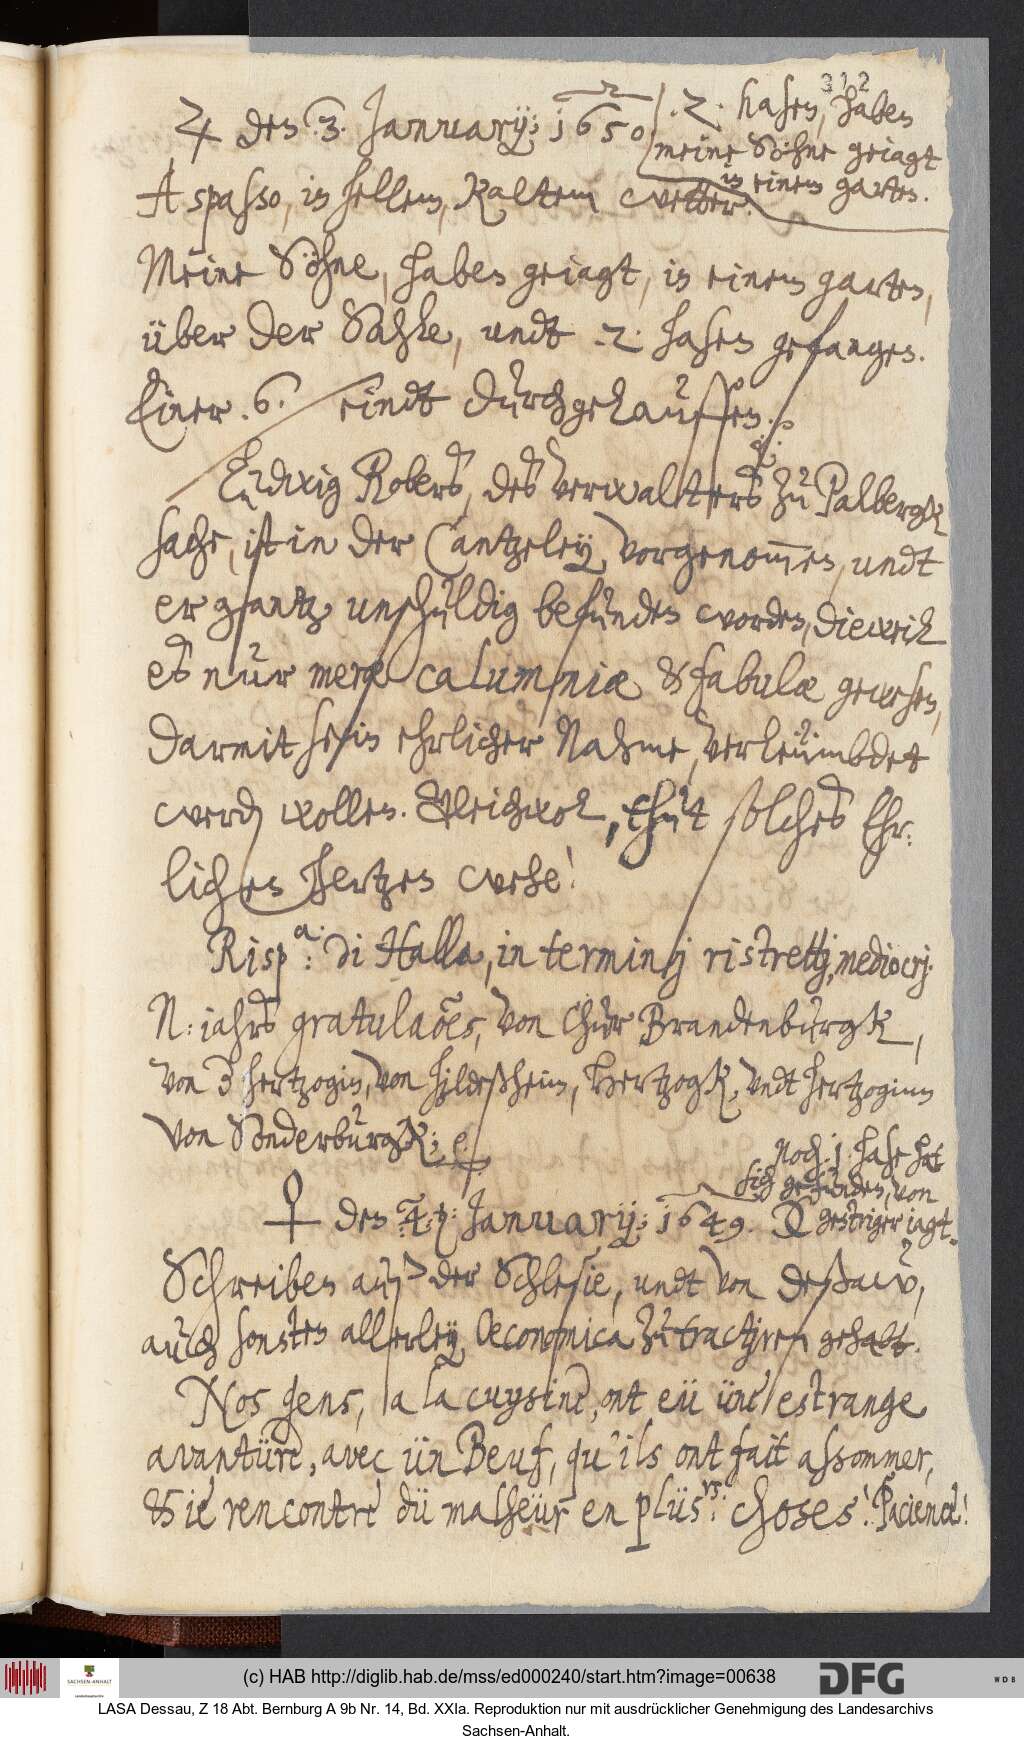 312
♃ den 3. January; 1650
2. hasen, haben
meine Söhne geiagt
in einem garten.
A spasso, in hellem, kaltem wetter.
Meine Söhne, haben geiagt, in einem garten,
über der Sahle, undt 2. hasen gefangen.
Einer .6. eindt durchgelauffen. p
Ludwig Röbers, des verwallters zu Palbergk
sache, ist in der Cantzeley vorgenom̅en, undt
er gantz unschuldig befunden worden, dieweil
es nur meræ calumniæ & fabulæ gewesen,
darmit sein ehrlicher Nahme, verleümbdet
werden wollen. Gleichwol, thut solches Ehr:
lichen Hertzen wehe!
Risp.a: di Halla, in terminj ristrettj, mediocrj.
N: iahrs gratulaões, von Chur Brandenburgk,
von 3 hertzogin, von Hildeßheim, Hertzogk, undt hertzoginn
von Sonderburgk; e
Noch 1 hase hat
sich gefunden, von
gestriger iagt.
♀ den 4. January; 1649.
Schreiben auß der Schlesie, undt von Deßaw,
auch sonsten allerley Œconomica zu tractiren gehabt.
Nos gens, a la cuysine, ont eü üne estrange
avantüre, avec ün Beuf, qu'ils ont fait assommer,
& ie rencontre dü malheür en plüs.rs: choses! Pacience!
(c) HAB http://diglib.hab.de/mss/ed000240/start.htm?image=00638
SACHSEN-ANHALT
DFG
WDB
LASA Dessau, Z 18 Abt. Bernburg A 9b Nr. 14, Bd. XXIa. Reproduktion nur mit ausdrücklicher Genehmigung des Landesarchivs
Sachsen-Anhalt.